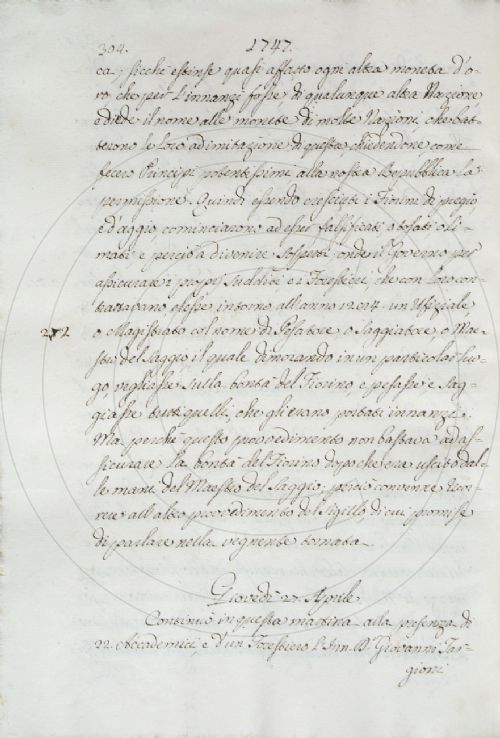 304. 1747.
ca, sicchè estinse quasi affatto ogni altra moneta d'o-
ro, che per l'innanzi fosse di qualunque altra Nazione
e diede il nome alle monete di molte Nazioni, che bat-
terono le loro ad imitazione di questa, chiedendone, come
fecero Principi potentissimi alla nostra Repubblica la
permissione. Quindi essendo cresciuti i Fiorini di pregio,
e d'aggio, cominciarono ad esser falsificati, o tosati o li-
mati, e perciò a divenire sospetti, onde il Governo per
assicurare i proprj Sudditi e i Forestieri, che con loro con-
trattavano elesse intorno all'anno 1214. un Ufiziale,
o Magistrato col nome di Pesatore, o Saggiatore, o Mae-
stro del Saggio il quale dimorando in un particolar luo-
go, vegliasse sulla bontà del Fiorino, e pesasse e sag-
giasse tutti quelli, che gli erano portati innanzi.
Ma perchè questo provvedimento non bastava ad as-
sicurare la bontà del Fiorino dopo che era uscito dal-
le mani del Maestro del Saggio; perciò convenne ricor-
rere all'altro provvedimento del Sigillo, di cui promise
di parlare nella vegnente tornata.
Giovedì 27 Aprile.
Continuò in questa mattina alla presenza di
22. Accademici e d'un Forestiero l'Am. D. Giovanni Tar-
gioni